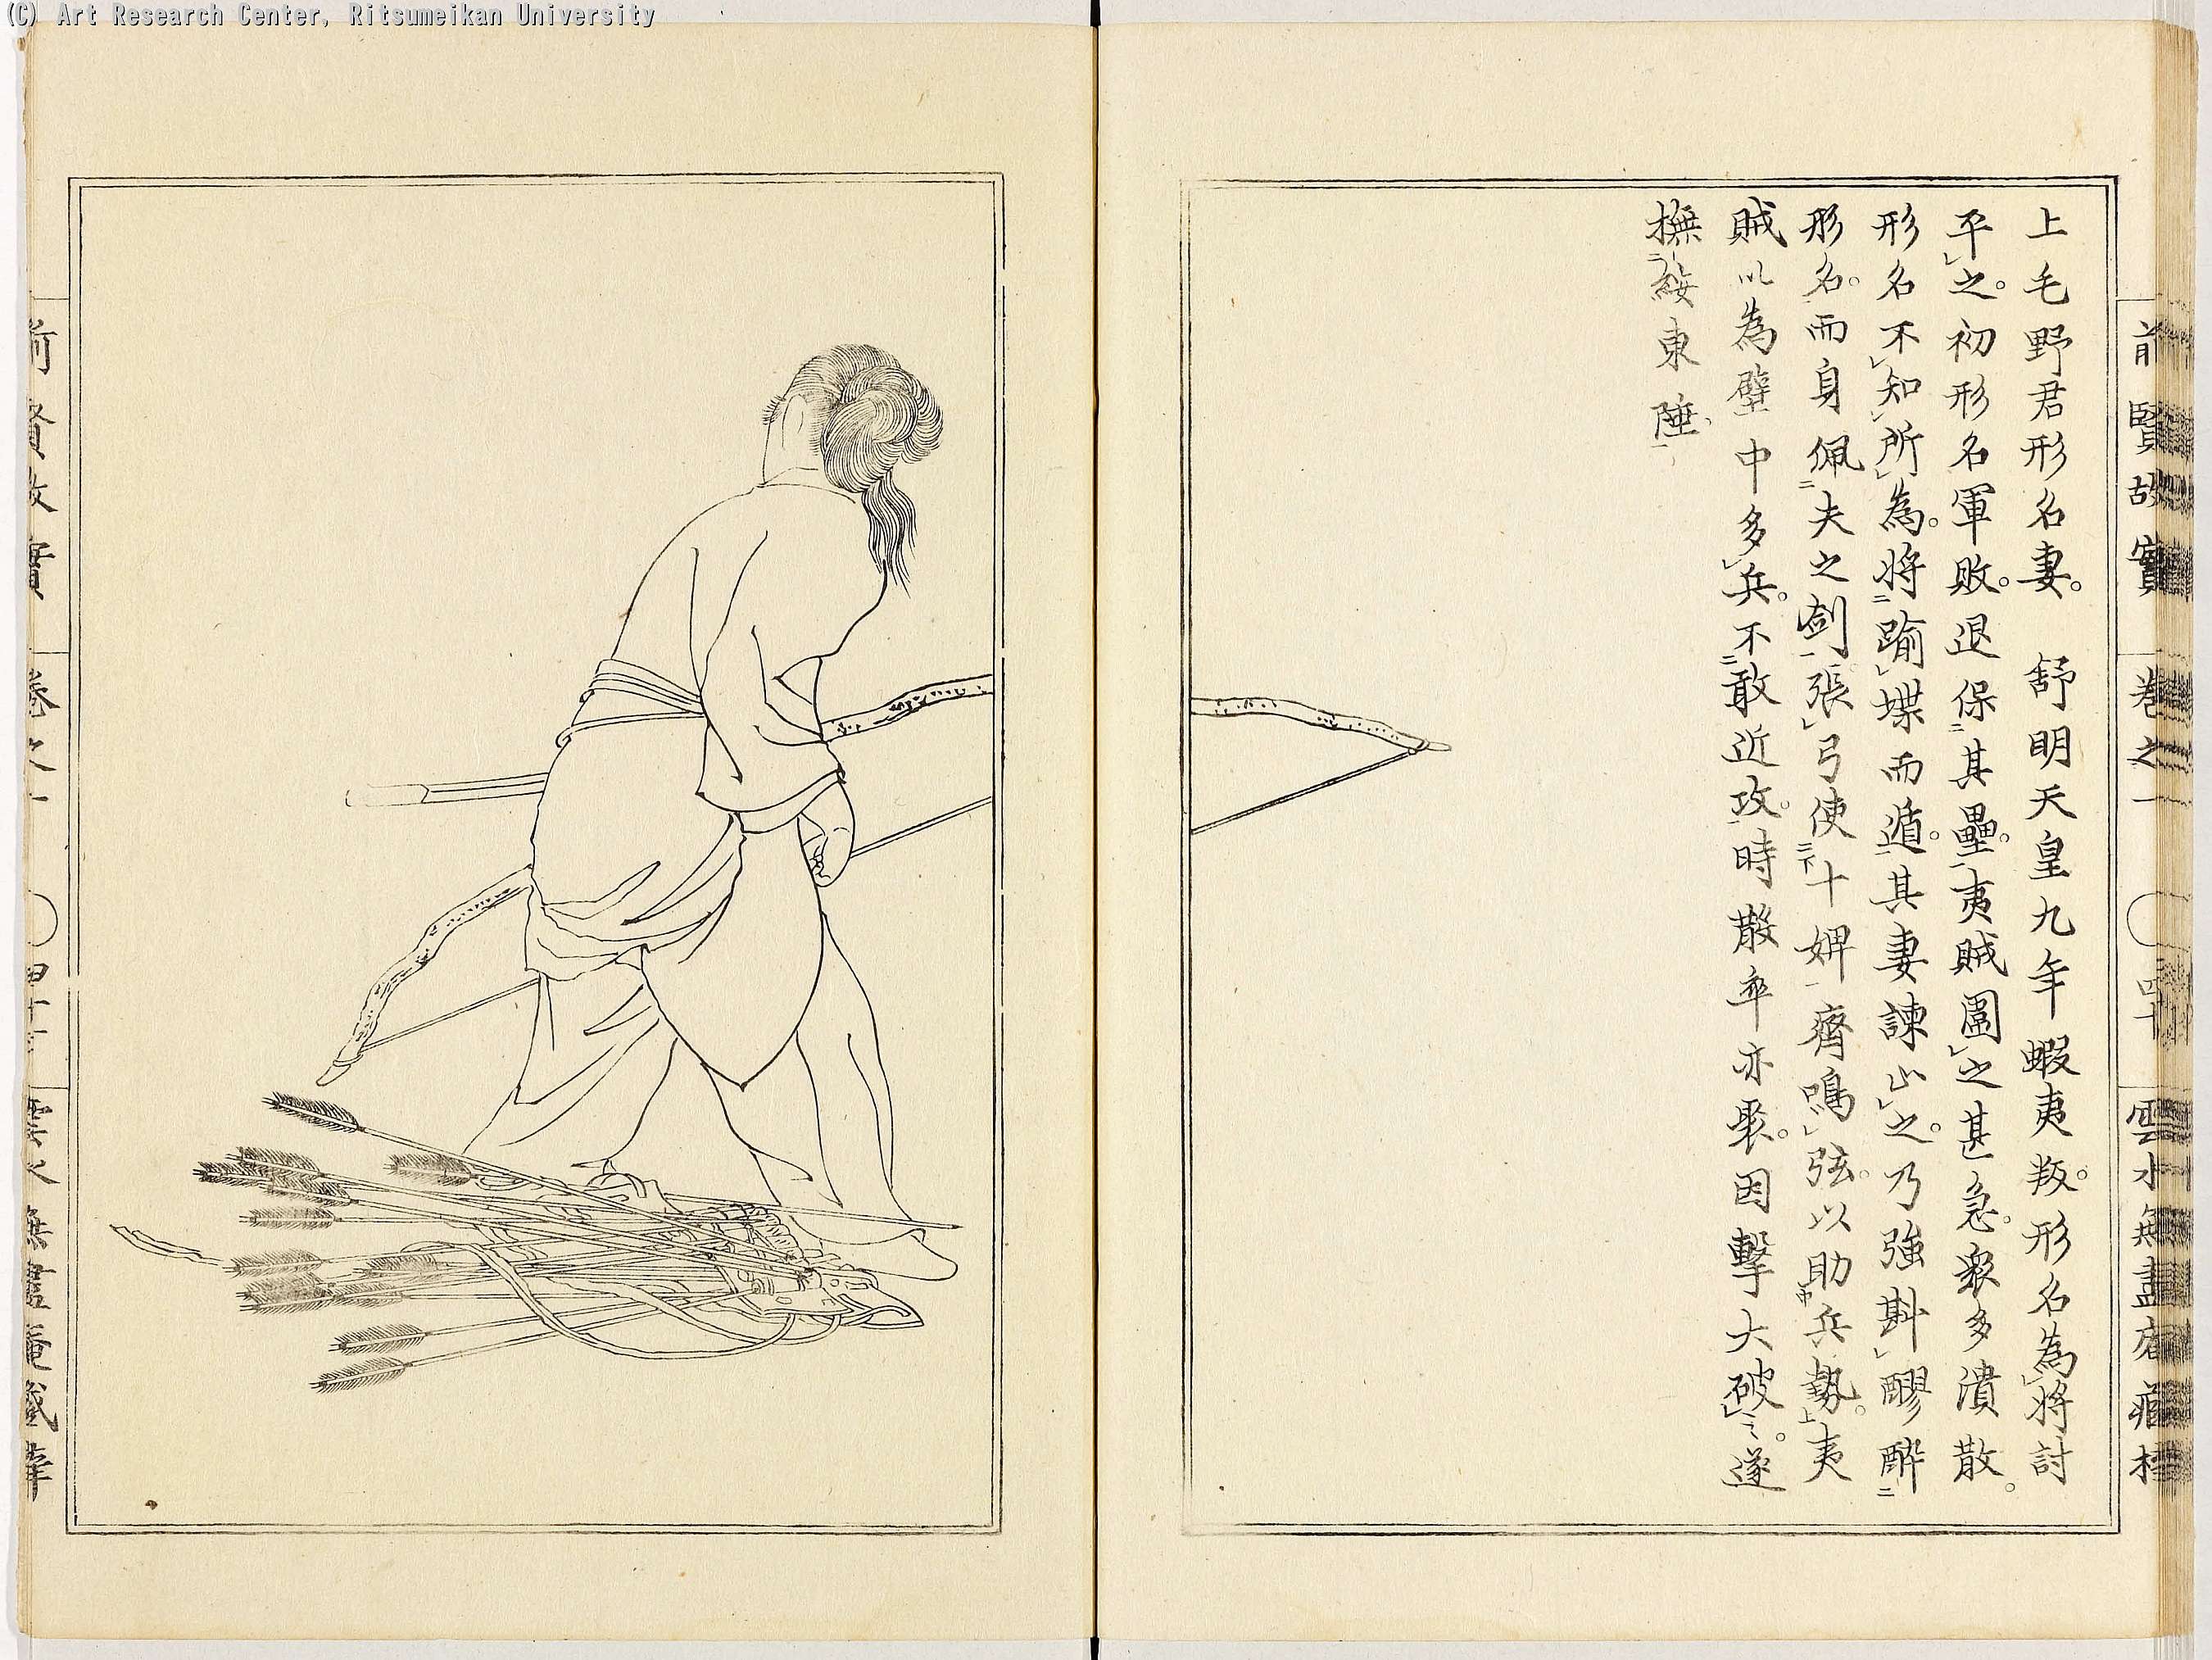 (C) Art Research Center, Ritsumeikan University
前賢故實 巻之一 雲水無盡庵藏
上毛野君形名妻。 舒明天皇九年蝦夷叛。形名為將討
平之。初形名軍敗。退保其壘。夷賊圍之甚急。衆多潰散。
形名不知所為。將踰堞而遁。其妻諫止之。乃強斟醪醉
形名。而身佩夫之劍。張弓使十婢齊鳴弦。以助兵勢。夷
賊以為壁中多兵。不敢近攻。時散卒亦聚。因擊大破之。遂
撫綏東陲。
前賢故實 巻之一 雲水無盡庵藏